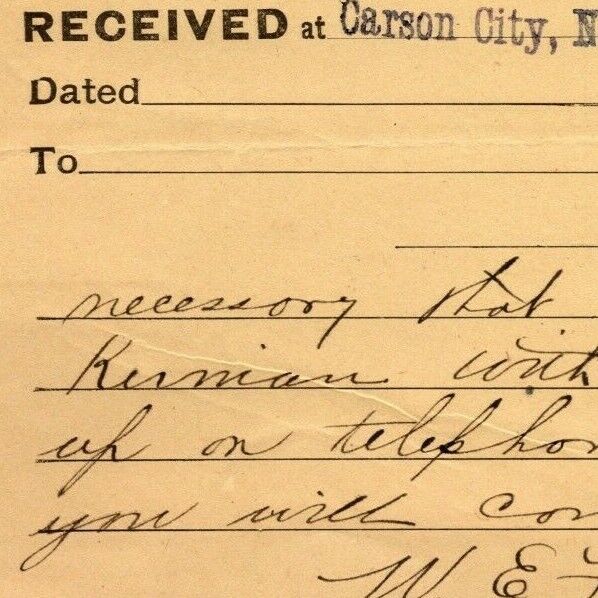 RECEIVED at Carson City, N
Dated
To
necessary that
Kernian with
up on telephon
you will con
W. E.